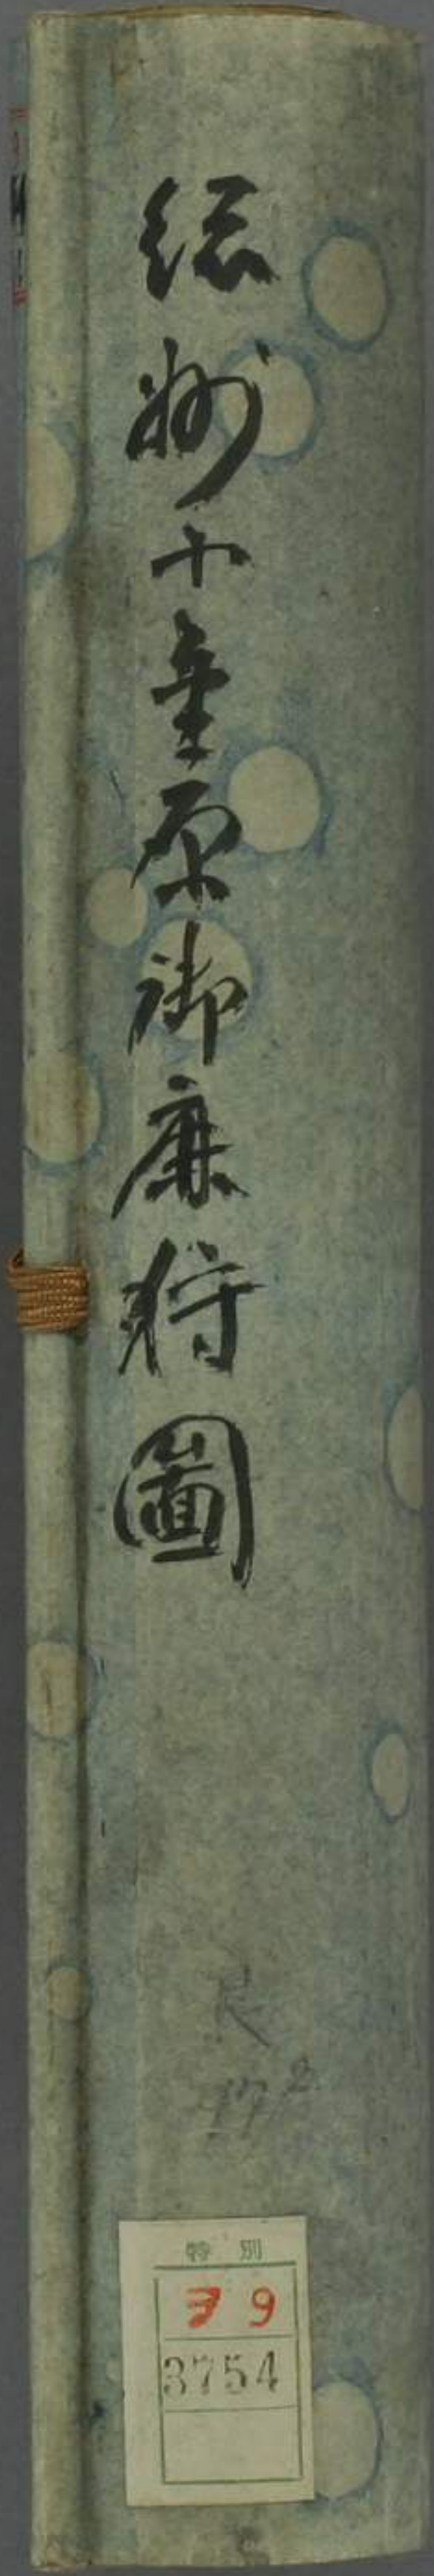 総州小金原御鹿狩圖
特別
ヲ 9
3754